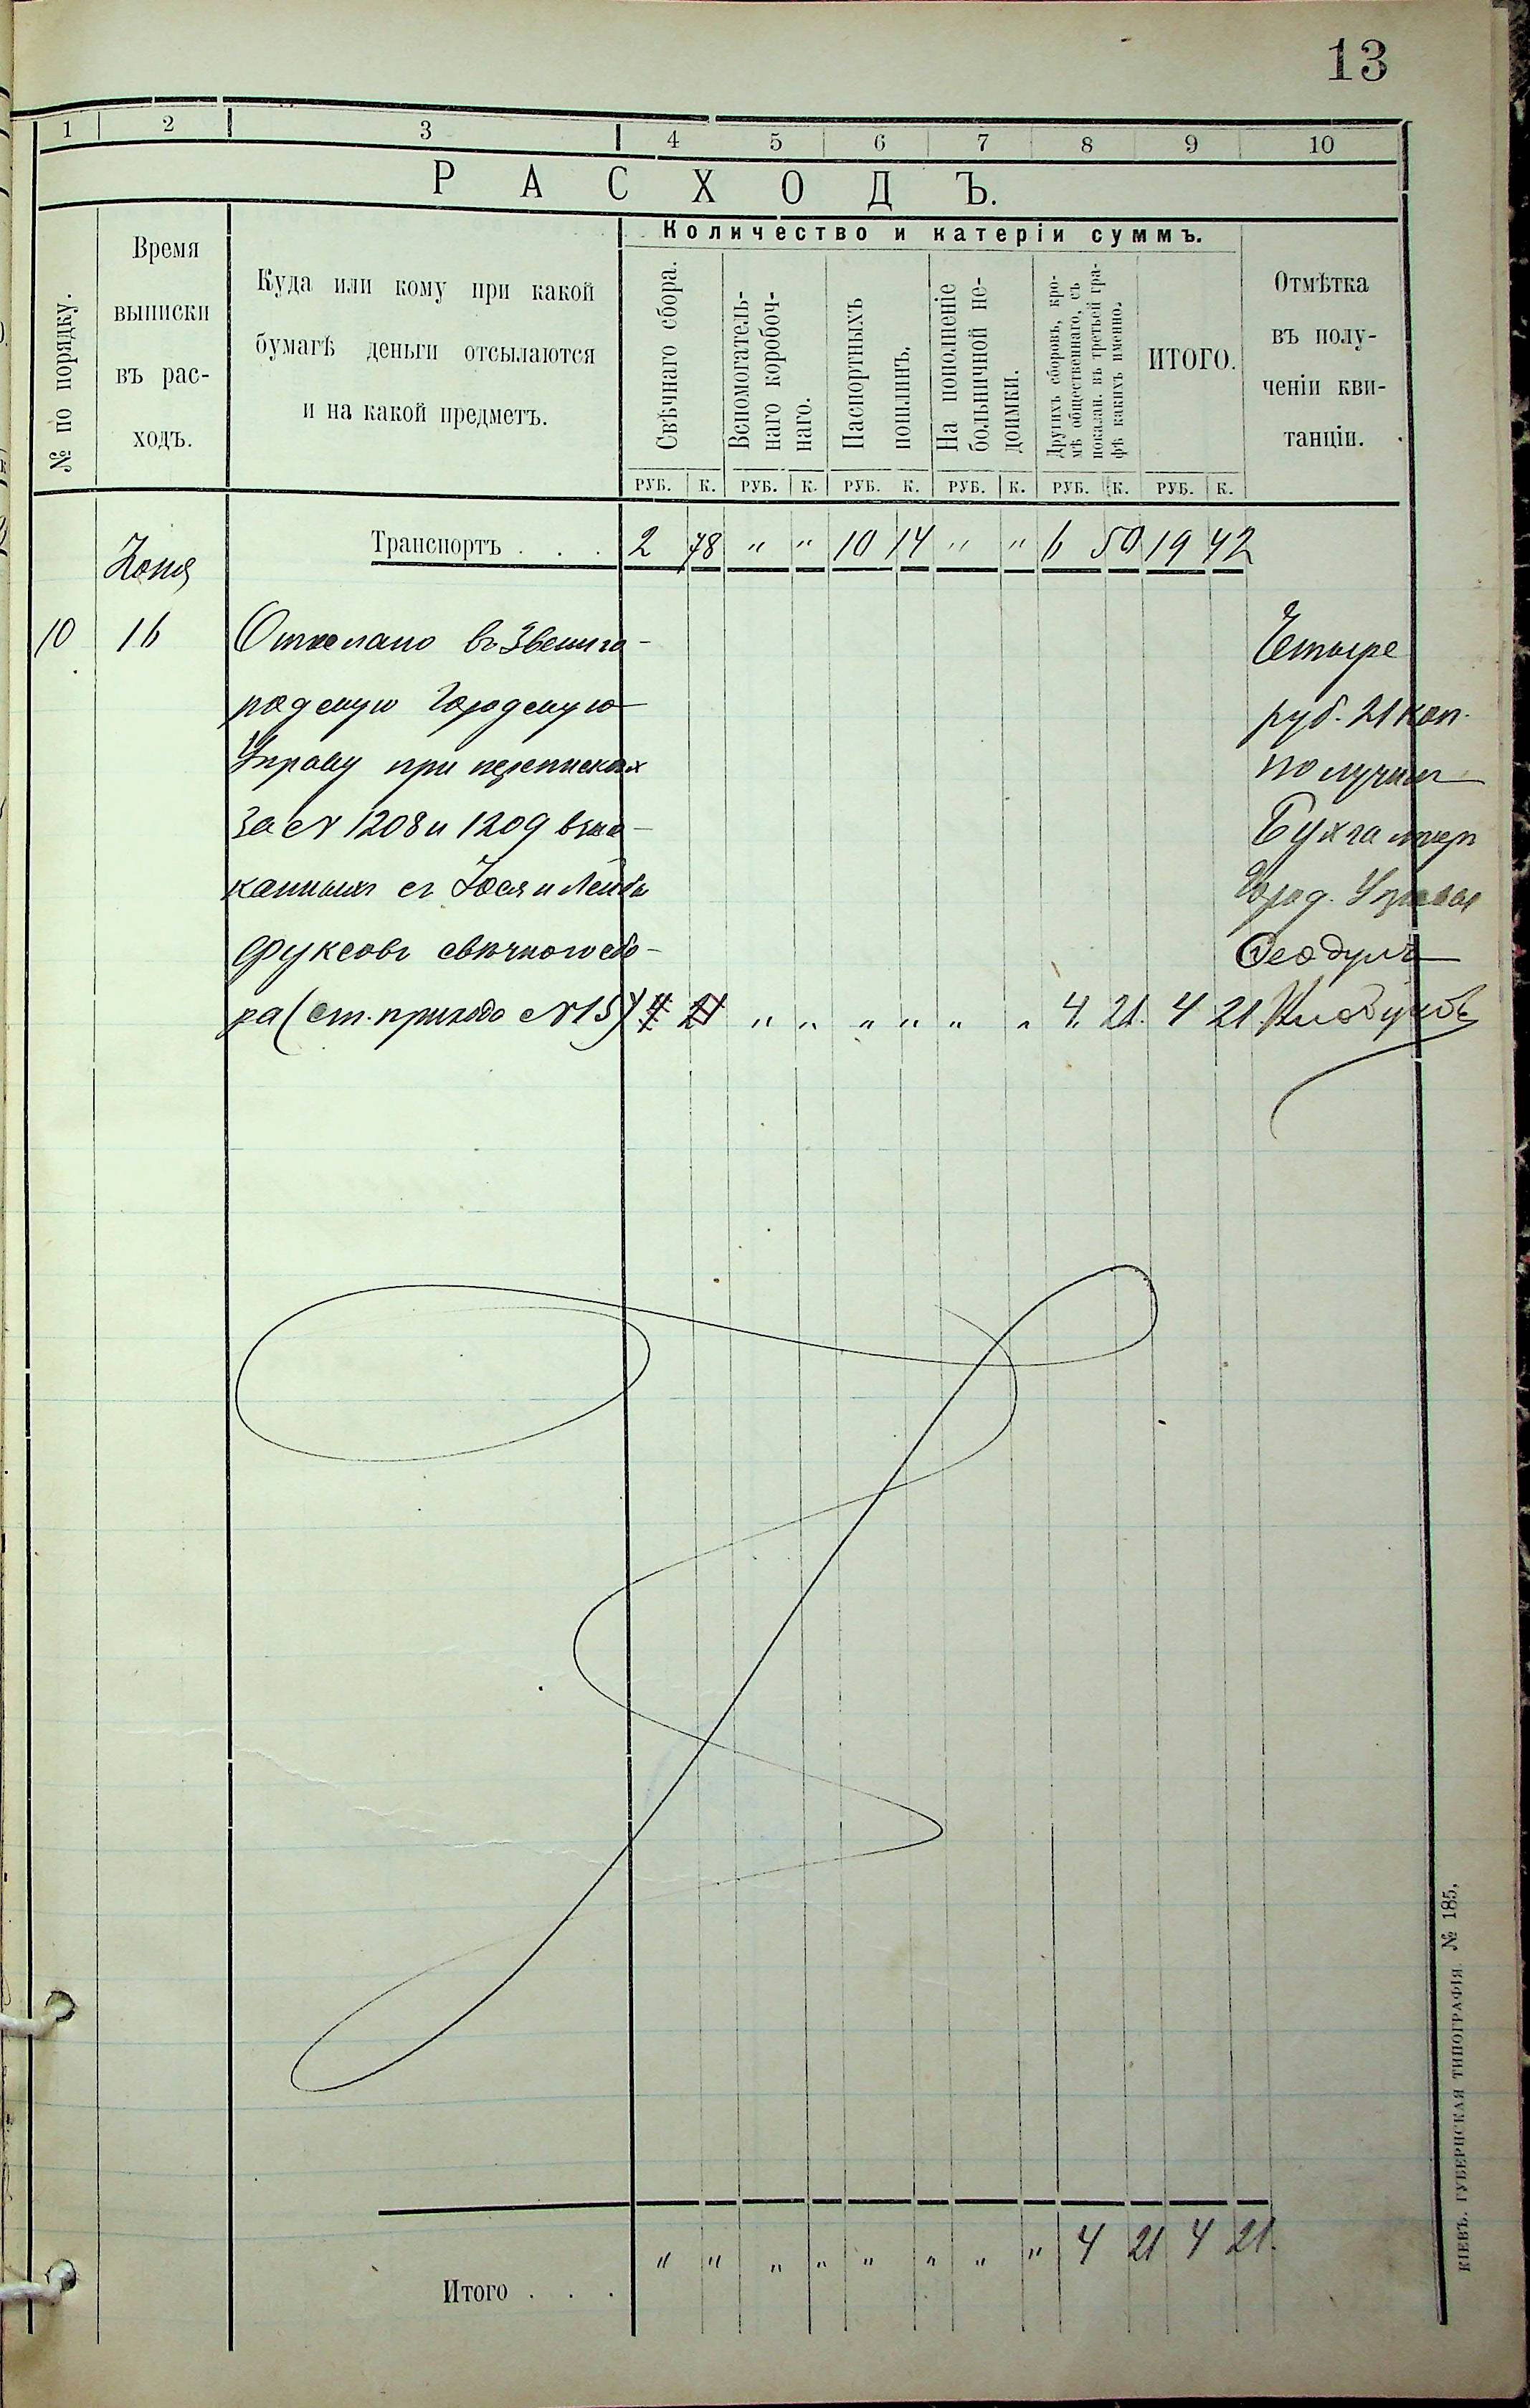 13
1 2 3 4 5 6 7 8 9 10
РАСХОДЪ.
№ по порядку.
Время
выписки
въ рас-
ходъ.
Куда или кому при какой
бумагѣ деньги отсылаются
и на какой предметъ.
Количество и катеріи суммъ.
Свѣчнаго сбора.
Вспомогатель-
наго коробоч-
наго.
Паспортныхъ
пошлинъ.
На пополненіе
больничной не-
доимки.
Другихъ сборовъ, кро-
мѣ общественнаго, съ
показан. въ третьей гра-
фѣ какихъ именно.
ИТОГО.
Отмѣтка
въ полу-
ченіи кви-
танціи.
РУБ. К. РУБ. К. РУБ. К. РУБ. К. РУБ. К. РУБ. К.
Транспортъ . . . 2 78 " " 10 14 " " 6 50 19 42
Іюня
10 16 Отослано въ Звениго-
родскую Городскую
Управу при перепискахъ
за № 1208 и 1209 взыс-
канныхъ съ Іося и Лейбы
Фуксовъ свѣчного сбо-
ра (ст. прихода № 15) 4 21 " " " " " " 4 21. 4 21
Четыре
руб. 21 коп.
получилъ
Бухгалтер
Город. Управы
Ѳеодулъ
Итого . . . " " " " " " " " 4 21 4 21.
КІЕВЪ. ГУБЕРНСКАЯ ТИПОГРАФІЯ. № 185.